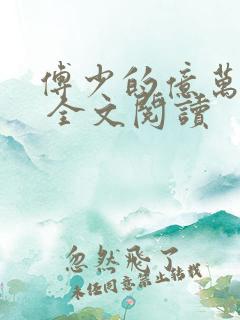 傅少的億萬
全文閱讀
忽然飛了
未经同意禁止转载